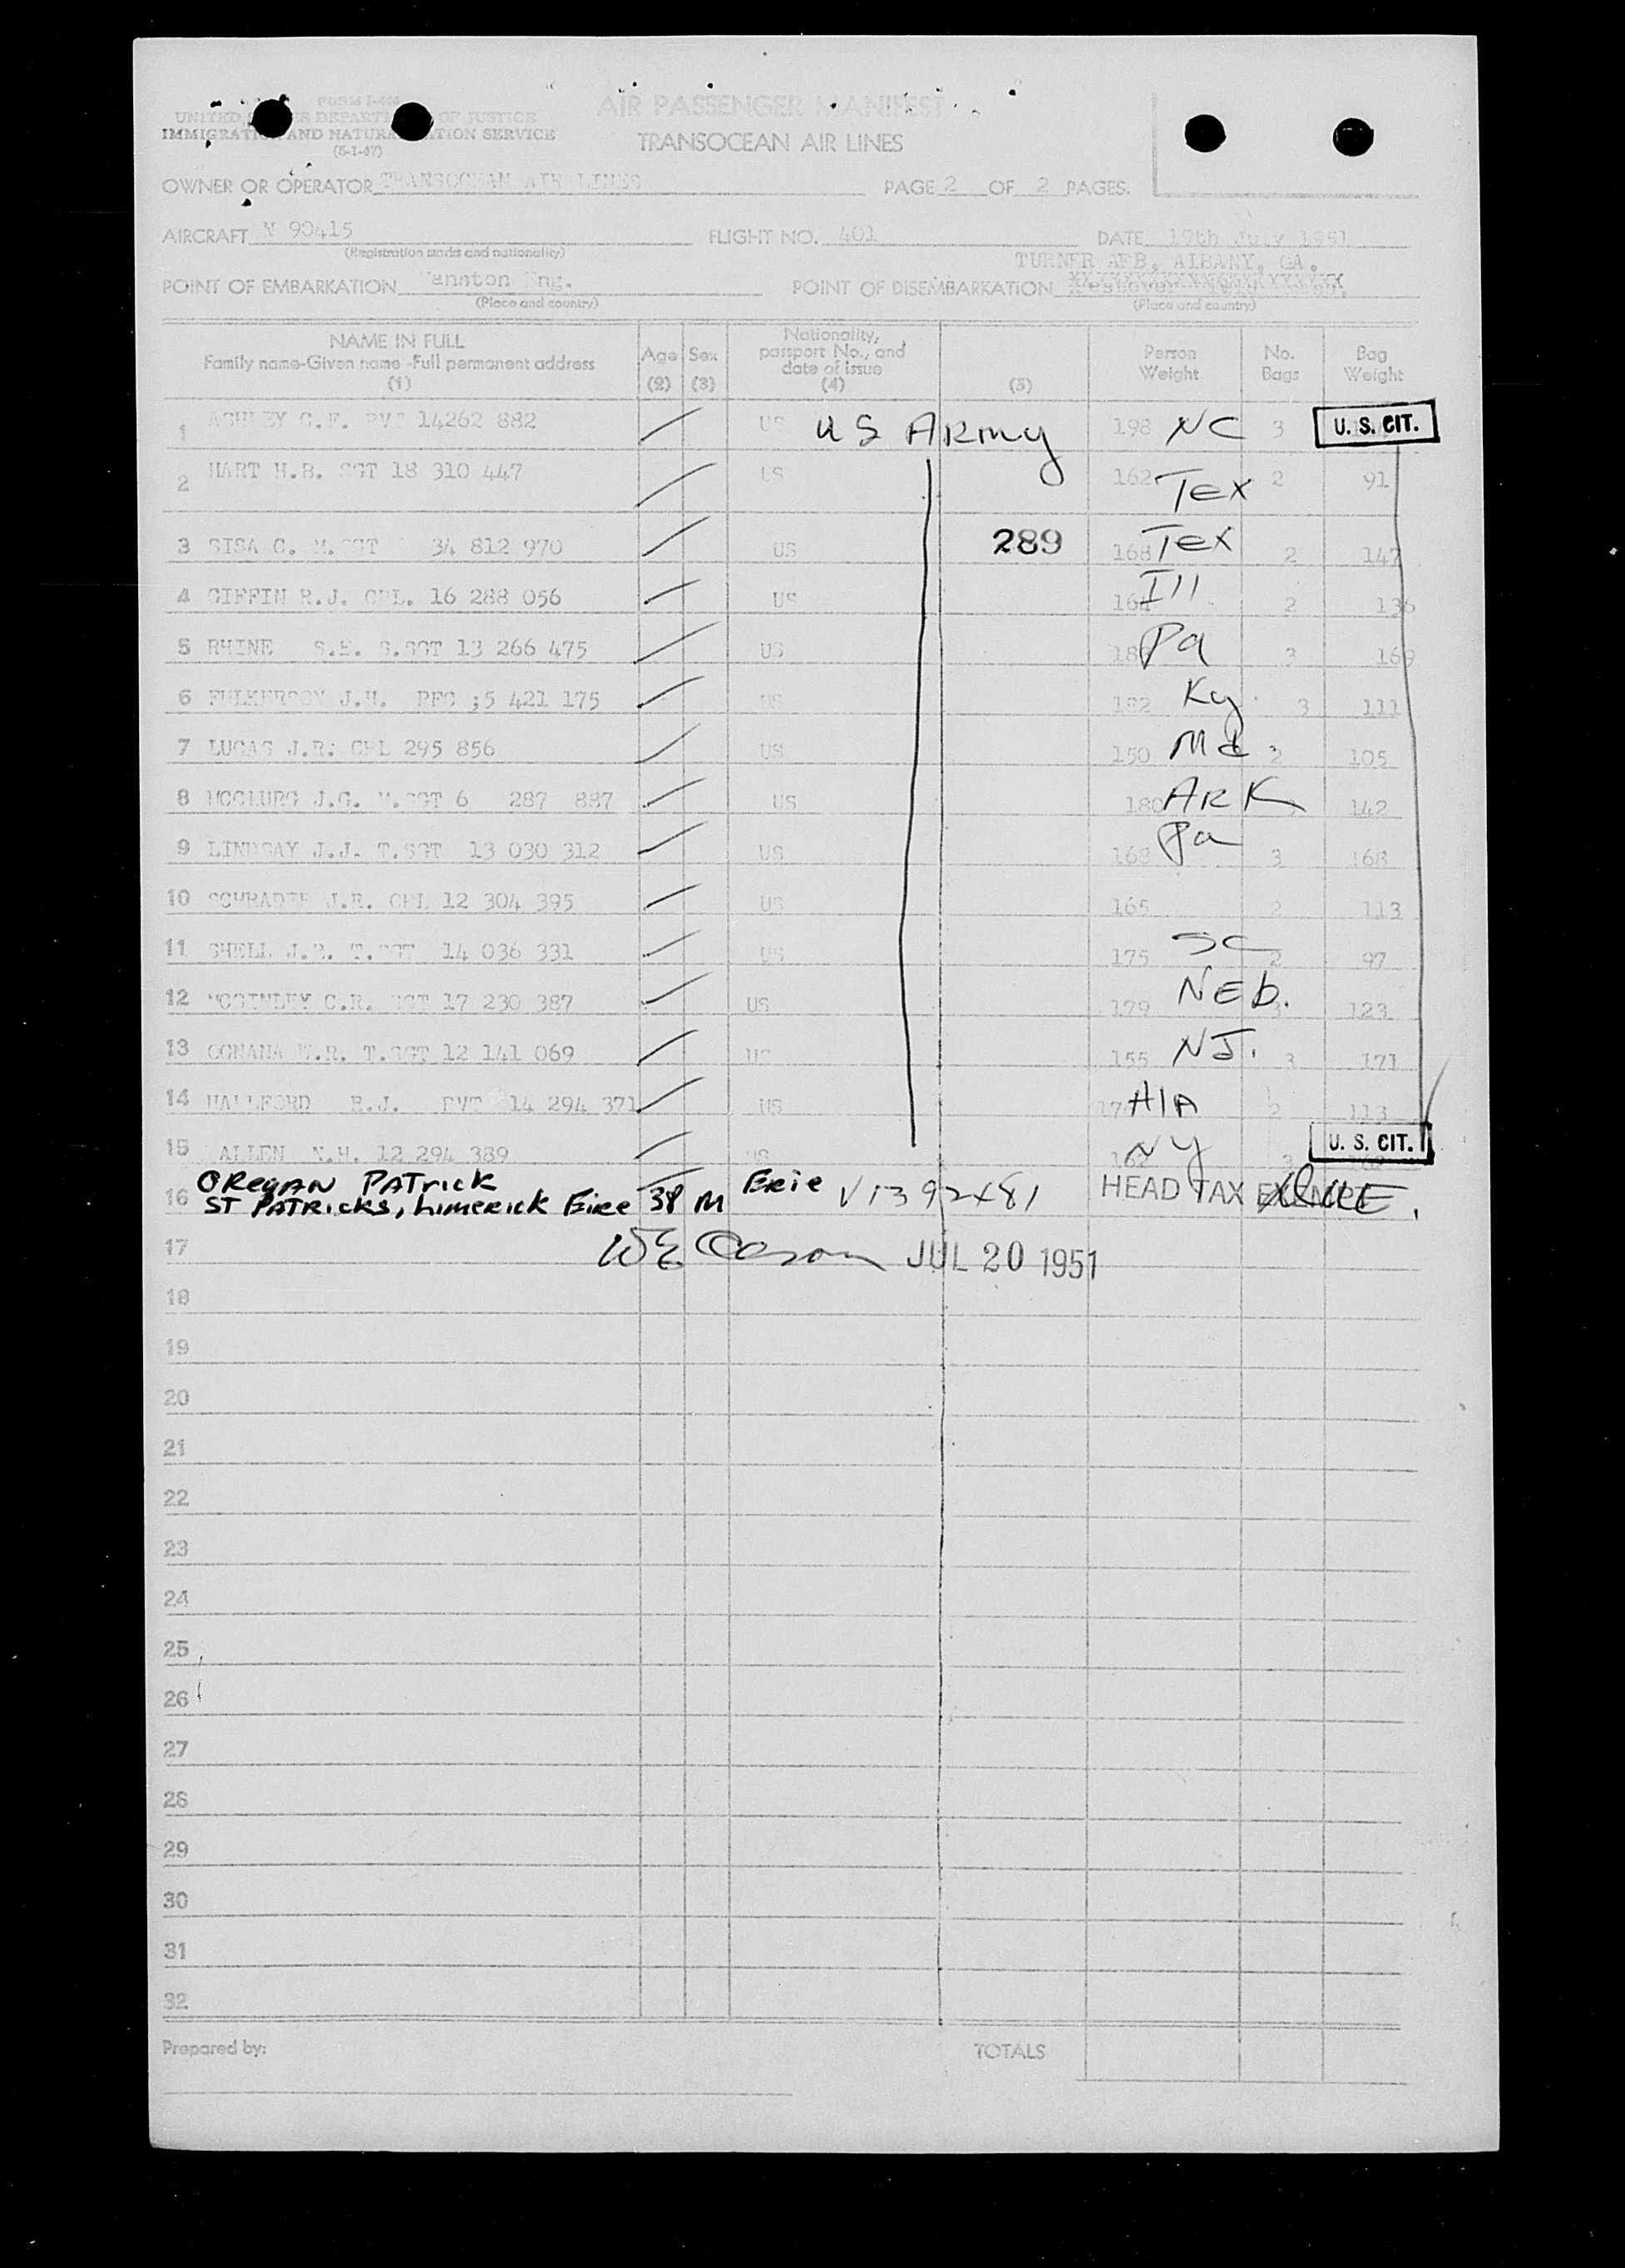 FORM I-466
UNITED STATES DEPARTMENT OF JUSTICE
IMMIGRATION AND NATURALIZATION SERVICE
(5-1-47)
AIR PASSENGER MANIFEST
TRANSOCEAN AIR LINES
OWNER OR OPERATOR TRANSOCEAN AIR LINES PAGE 2 OF 2 PAGES.
AIRCRAFT N 90415 FLIGHT NO. 401 DATE 19th July 1951
(Registration marks and nationality)
TURNER AFB, ALBANY, GA.
POINT OF EMBARKATION Manston Eng. POINT OF DISEMBARKATION
(Place and country) (Place and country)
NAME IN FULL
Family name-Given name-Full permanent address
(1)
Age (2) Sex (3)
Nationality, passport No., and date of issue (4)
(5)
Person Weight No. Bags Bag Weight
1 ASHLEY C.E. PVT 14262 882 US US ARmy 198 NC 3 U. S. CIT.
2 HART H.B. SGT 18 310 447 US 162 Tex 2 91
3 SISA C. M.SGT 34 812 970 US 289 168 Tex 2 147
4 GIFFIN R.J. CPL. 16 288 056 US 164 Ill 2 136
5 RHINE S.E. S.SGT 13 266 475 US Pa 3 169
6 FULKERSON J.H. PFC ;5 421 175 US 182 Ky. 3 111
7 LUCAS J.R: CPL 295 856 US 150 Md. 2 105
8 MCCLURG J.G. M.SGT 6 287 887 US 180 ARK 142
9 LINDSAY J.J. T.SGT 13 030 312 US 168 Pa 3 168
10 SCHRADER J.R. CPL 12 304 395 US 165 2 113
11 SHELL J.R. T.SGT 14 036 331 US 175 SC 2 97
12 MCGINLEY C.R. SGT 17 230 387 US 179 NEb. 3 123
13 CONANA W.R. T.SGT 12 141 069 US 155 NJ. 3 171
14 HALLFORD R.J. PVT 14 294 371 US AlA 2 113
15 ALLEN N.H. 12 294 389 US 162 NY 3 U. S. CIT.
OREGAN PATrick
16 ST PATRicks, Limerick Eire 38 M Erie V1392481 HEAD TAX
17 JUL 20 1951
18
19
20
21
22
23
24
25
26
27
28
29
30
31
32
Prepared by: TOTALS